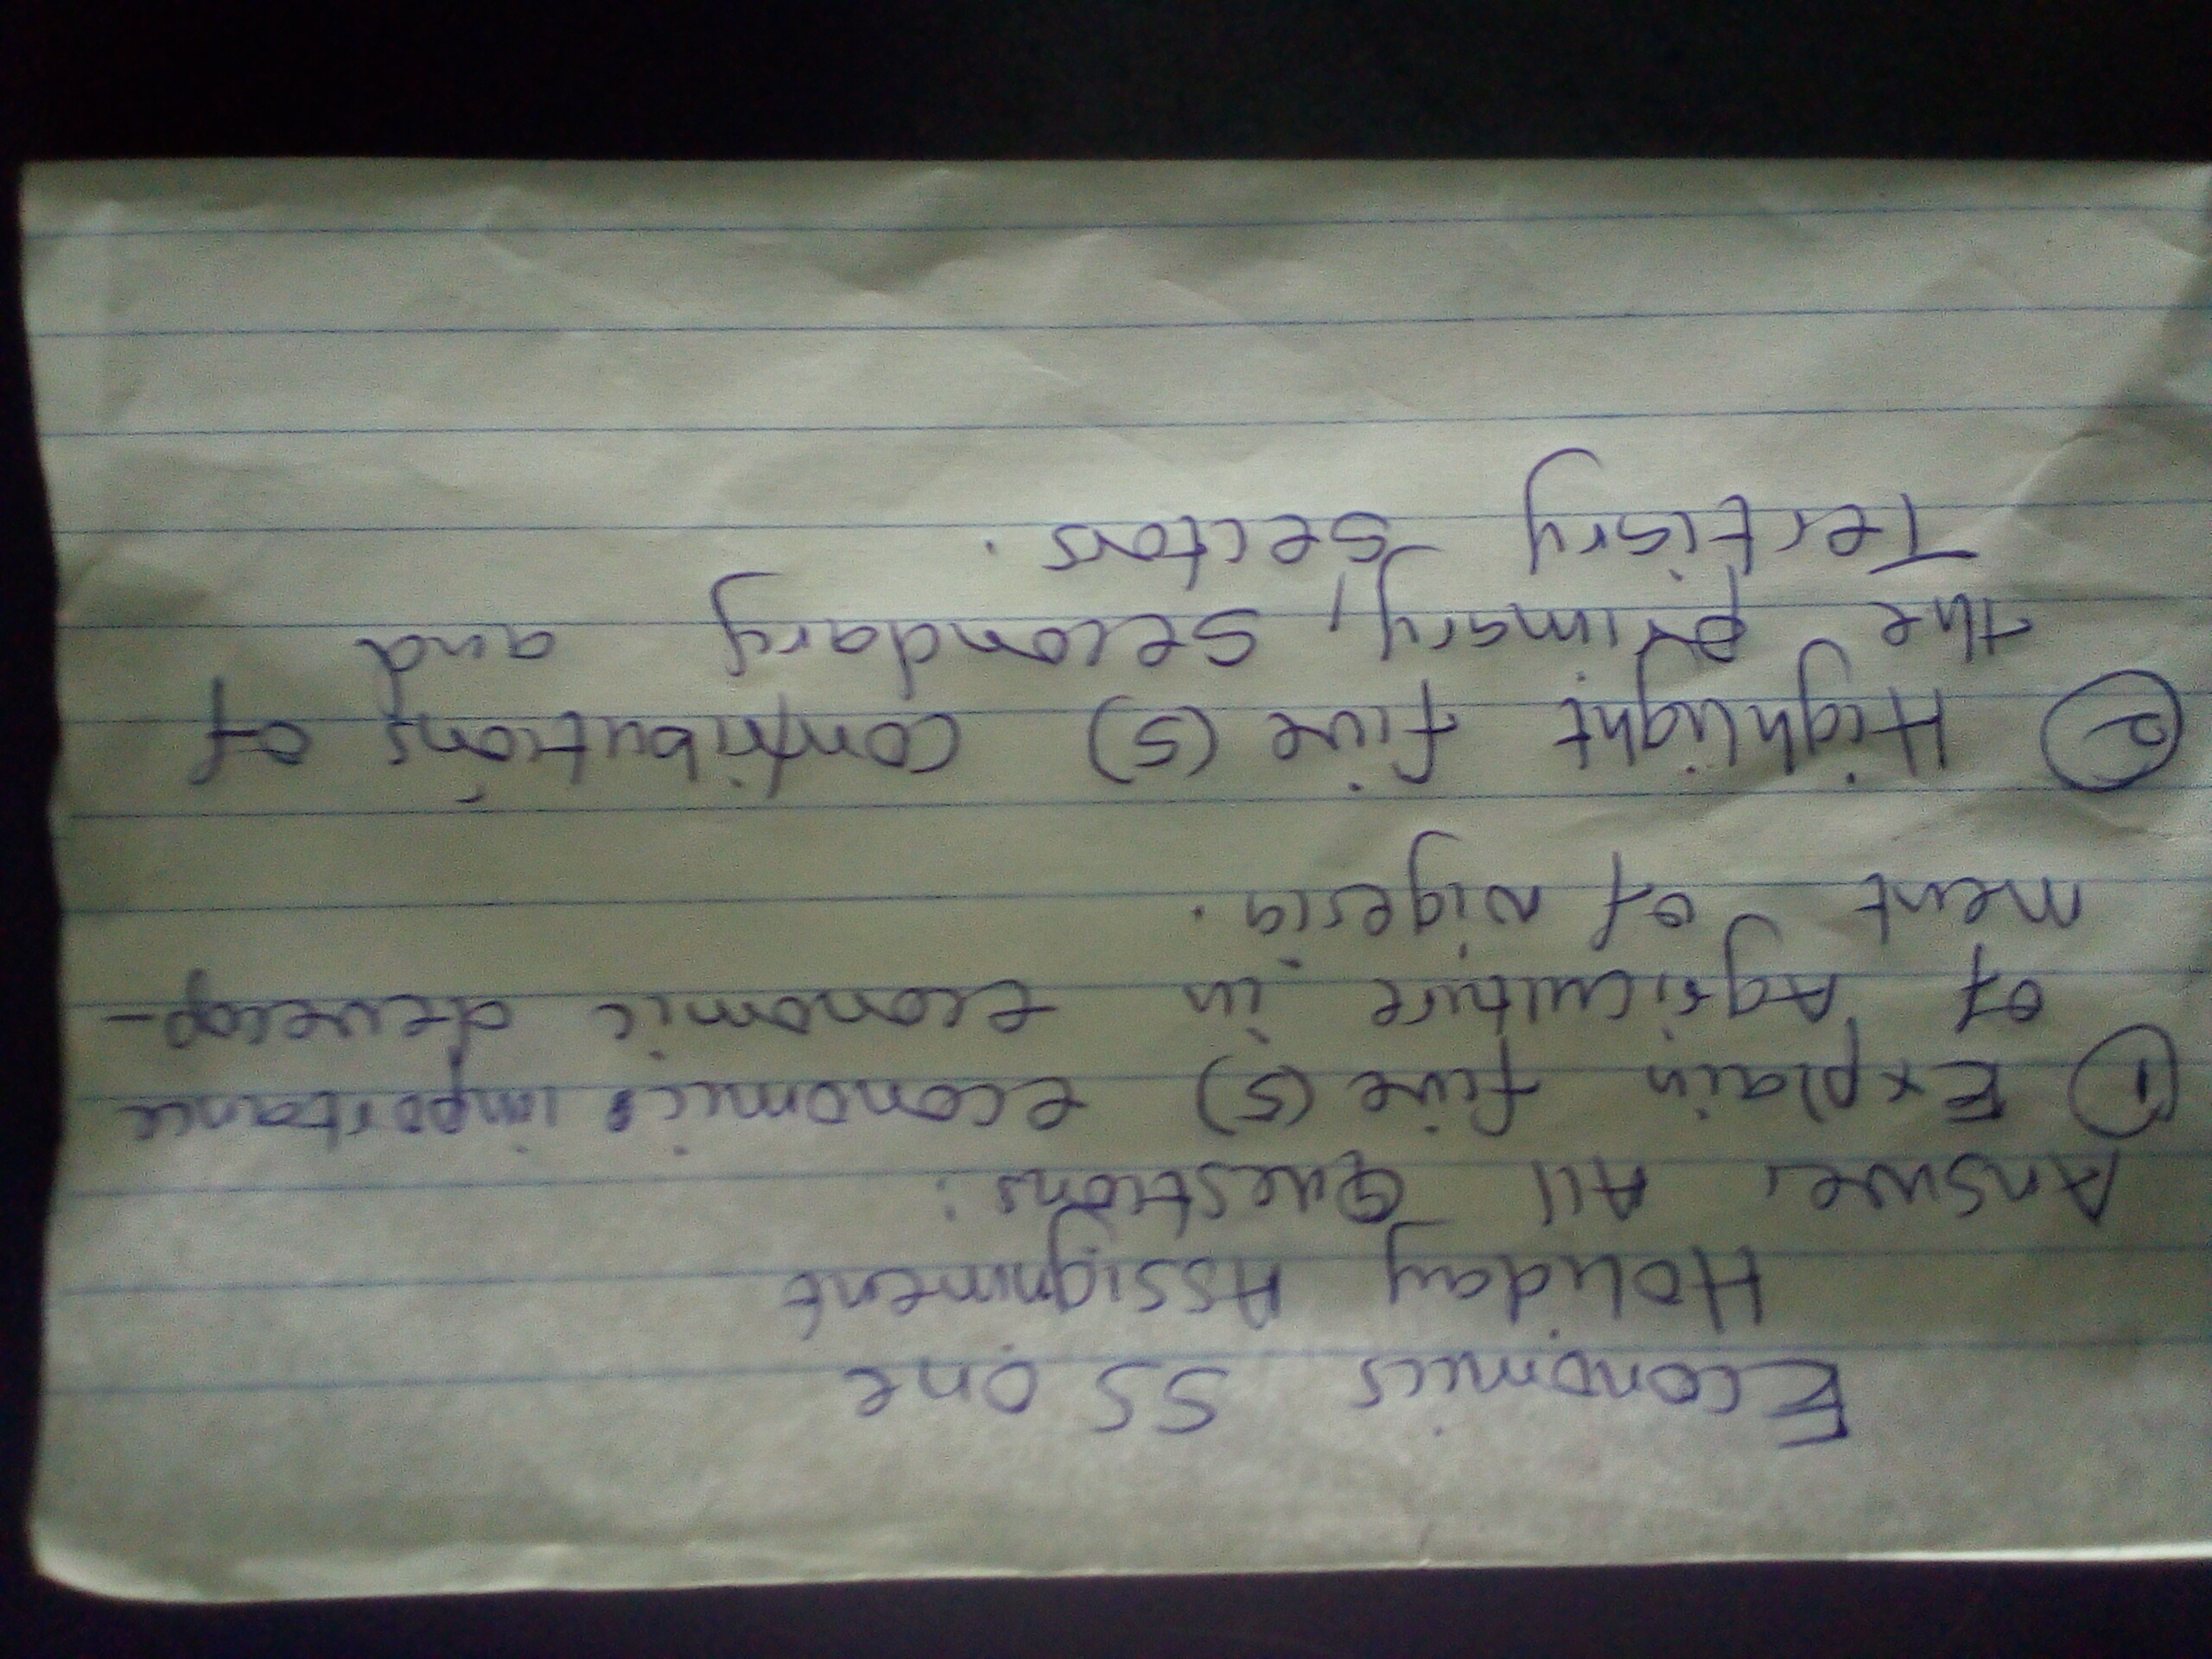 Economics SS One
Holiday Assignment
Answer All Questions:
① Explain five (5) economics importance
of Agriculture in economic develop-
ment of nigeria.
② Highlight five (5) contributions of
the primary, secondary and
Tertiary Sectors.